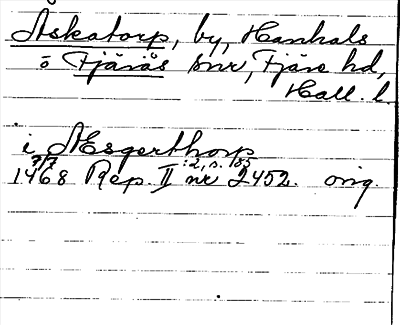 Askatorp, by, Hanhals
o Fjärås snr, Fjäre hd,
Hall. l
i Æsgerthorp
7/7 :2, s. 185
1468 Rep. II nr 2452. orig.